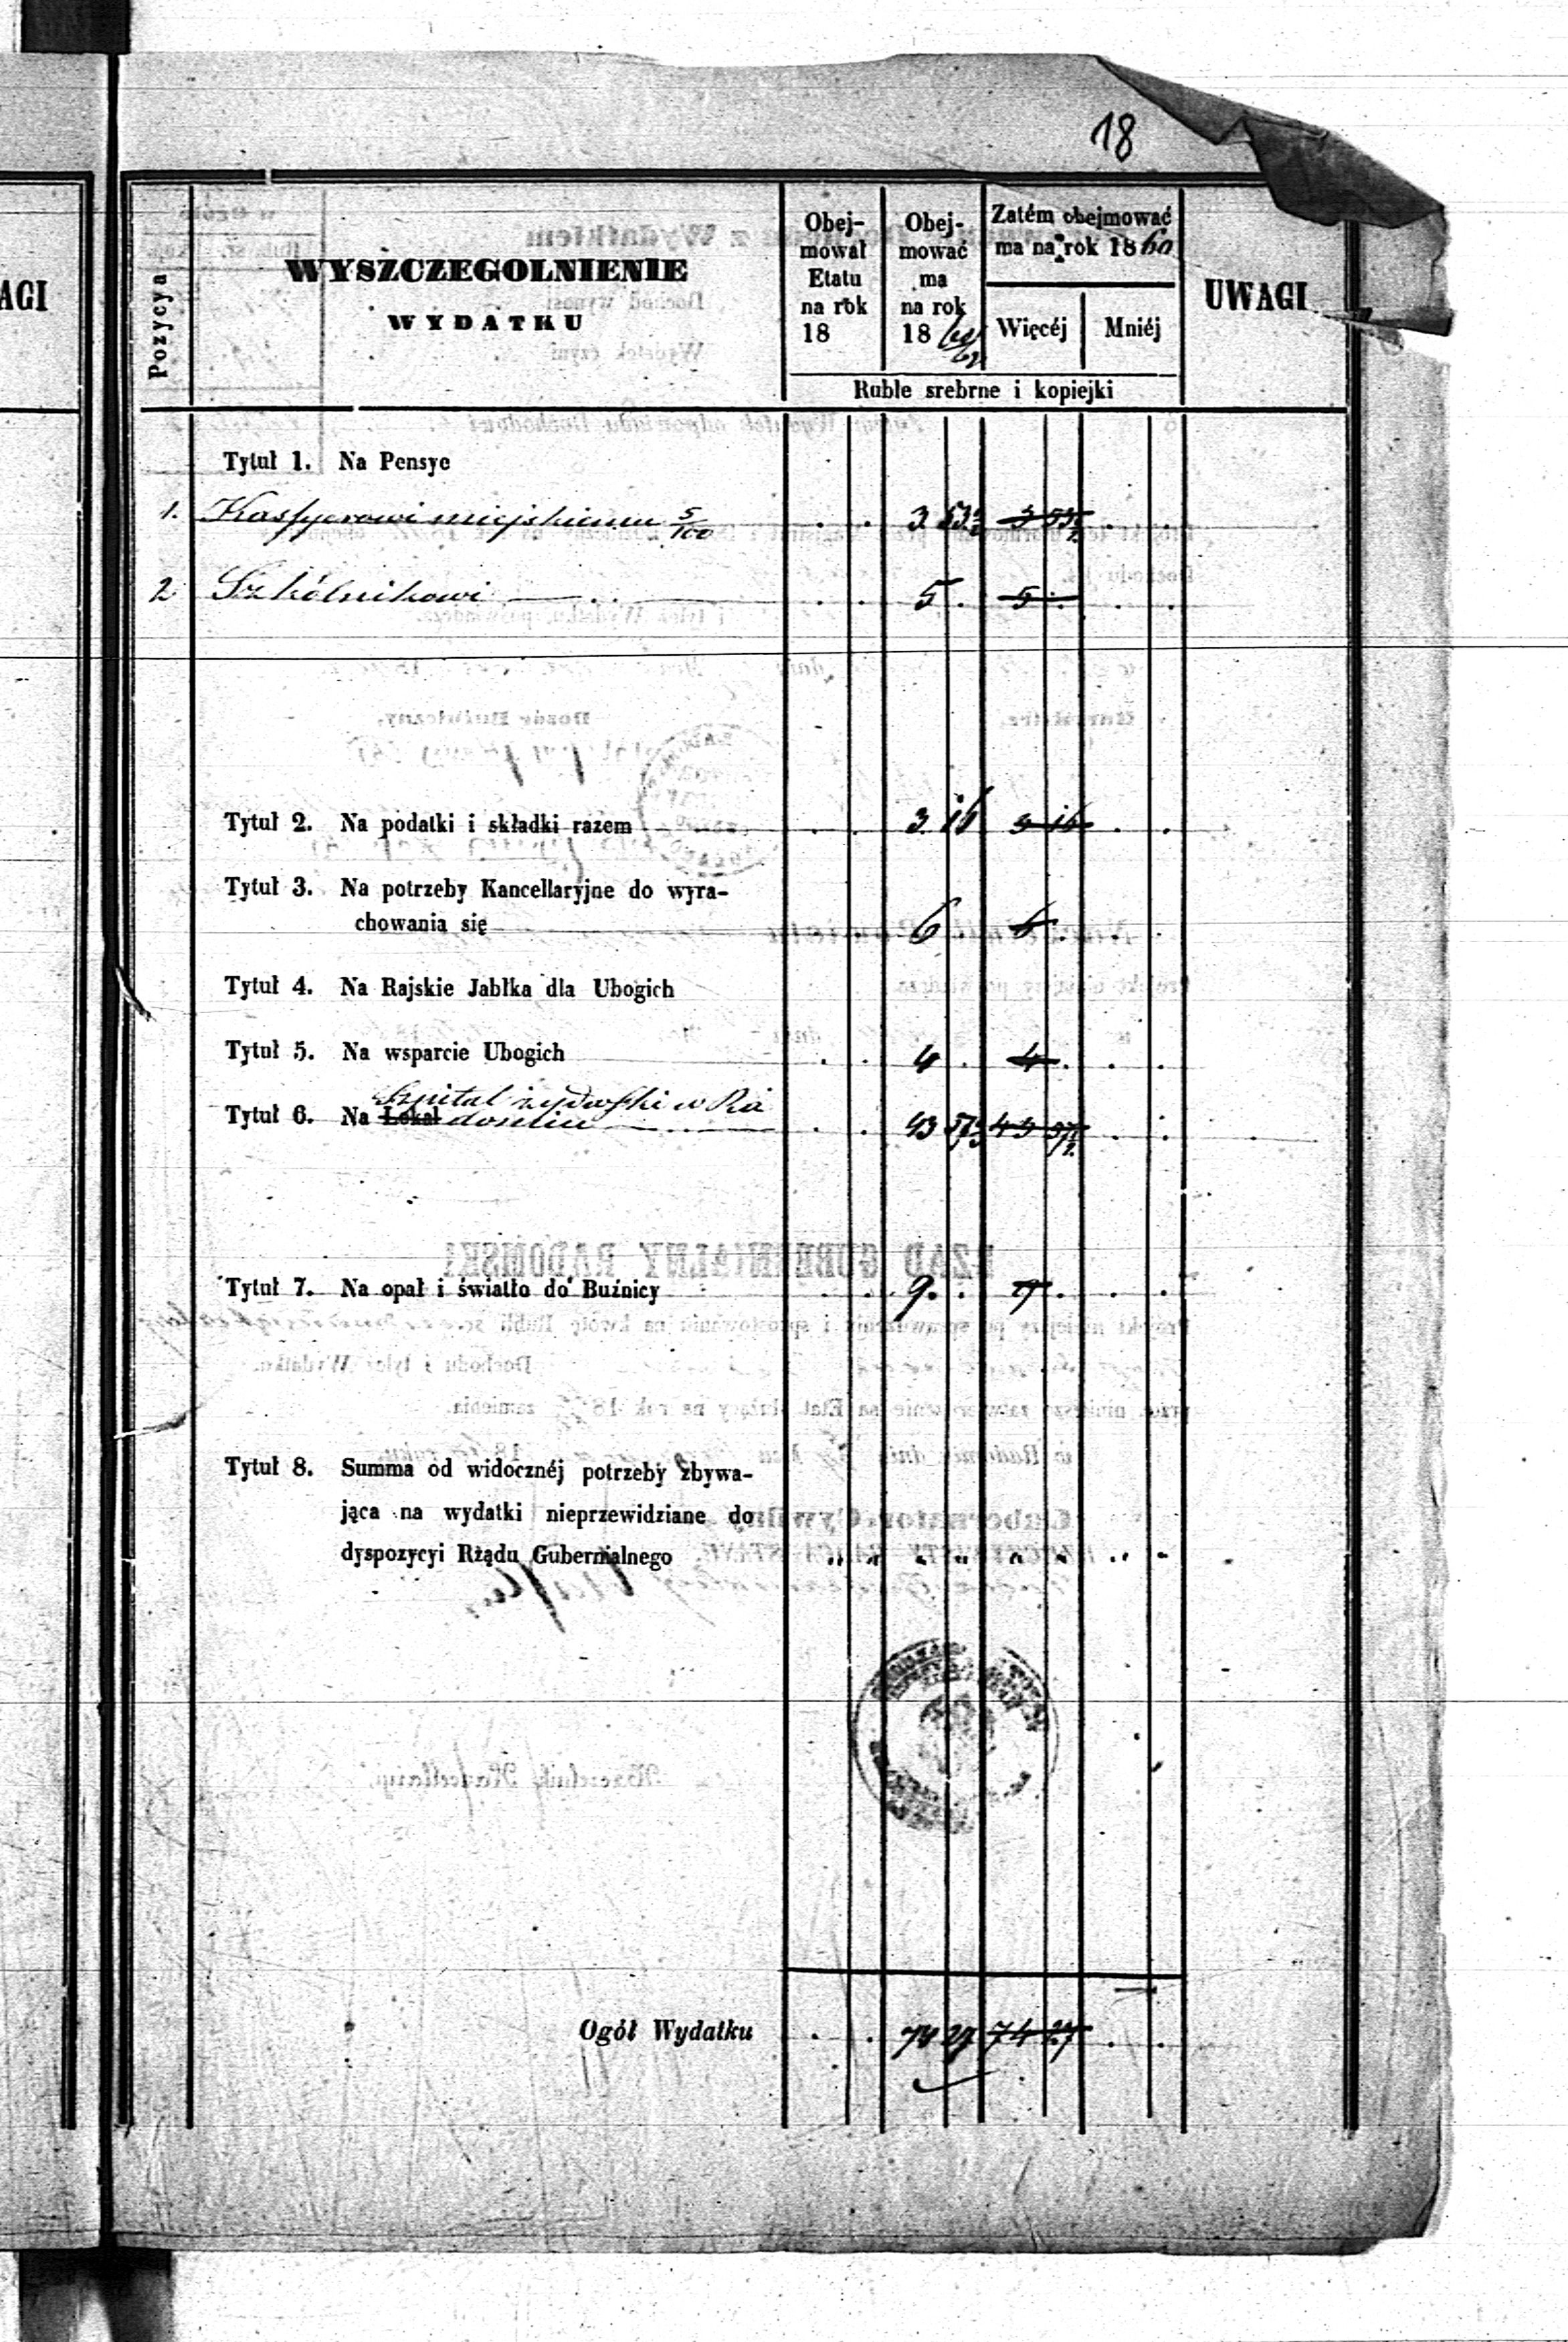 18
AGI
Pozycya
WYSZCZEGOLNIENIE
WYDATKU
Obej-
mował
Etatu
na rok
18
Obej-
mować
ma
na rok
18 60/62
Zatém obejmować
ma na rok 18 60
Więcéj Mniéj
UWAGI
Ruble srebrne i kopiejki
Tytuł 1. Na Pensye
1. Kassyerowi miejskiemu 5/100 3 53½ 3 53½
2 Szkólnikowi 5 5
Tytuł 2. Na podatki i składki razem 3 16 3 16
Tytuł 3. Na potrzeby Kancellaryjne do wyra-
chowania się 6 6
Tytuł 4. Na Rajskie Jabłka dla Ubogich
Tytuł 5. Na wsparcie Ubogich 4 4
Szpital żydowski w Ra
Tytuł 6. Na Lokal domiu 43 57½ 43 57½
Tytuł 7. Na opał i światło do Buźnicy 9 9
Tytuł 8. Summa od widocznéj potrzeby zbywa-
jąca na wydatki nieprzewidziane do
dyspozycyi Rządu Gubernialnego
Ogół Wydatku 74 27 74 27